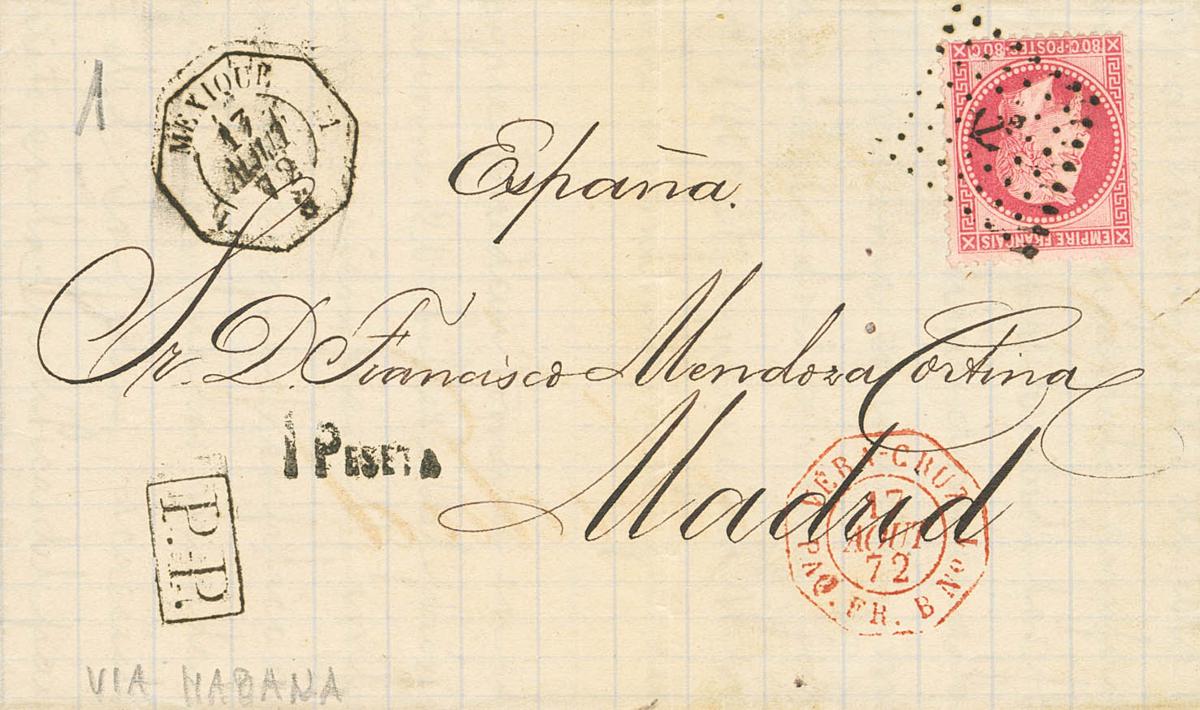 1
MEXIQUE 1
17
AOUT
72
80C·POSTES·80C
EMPIRE FRANÇAIS
España.
Sr. D. Francisco Mendoza Cortina
1 PESETA
Madrid
P.P.
VERA-CRUZ
17
AOUT
72
PAQ. FR. B No 1
VIA HABANA